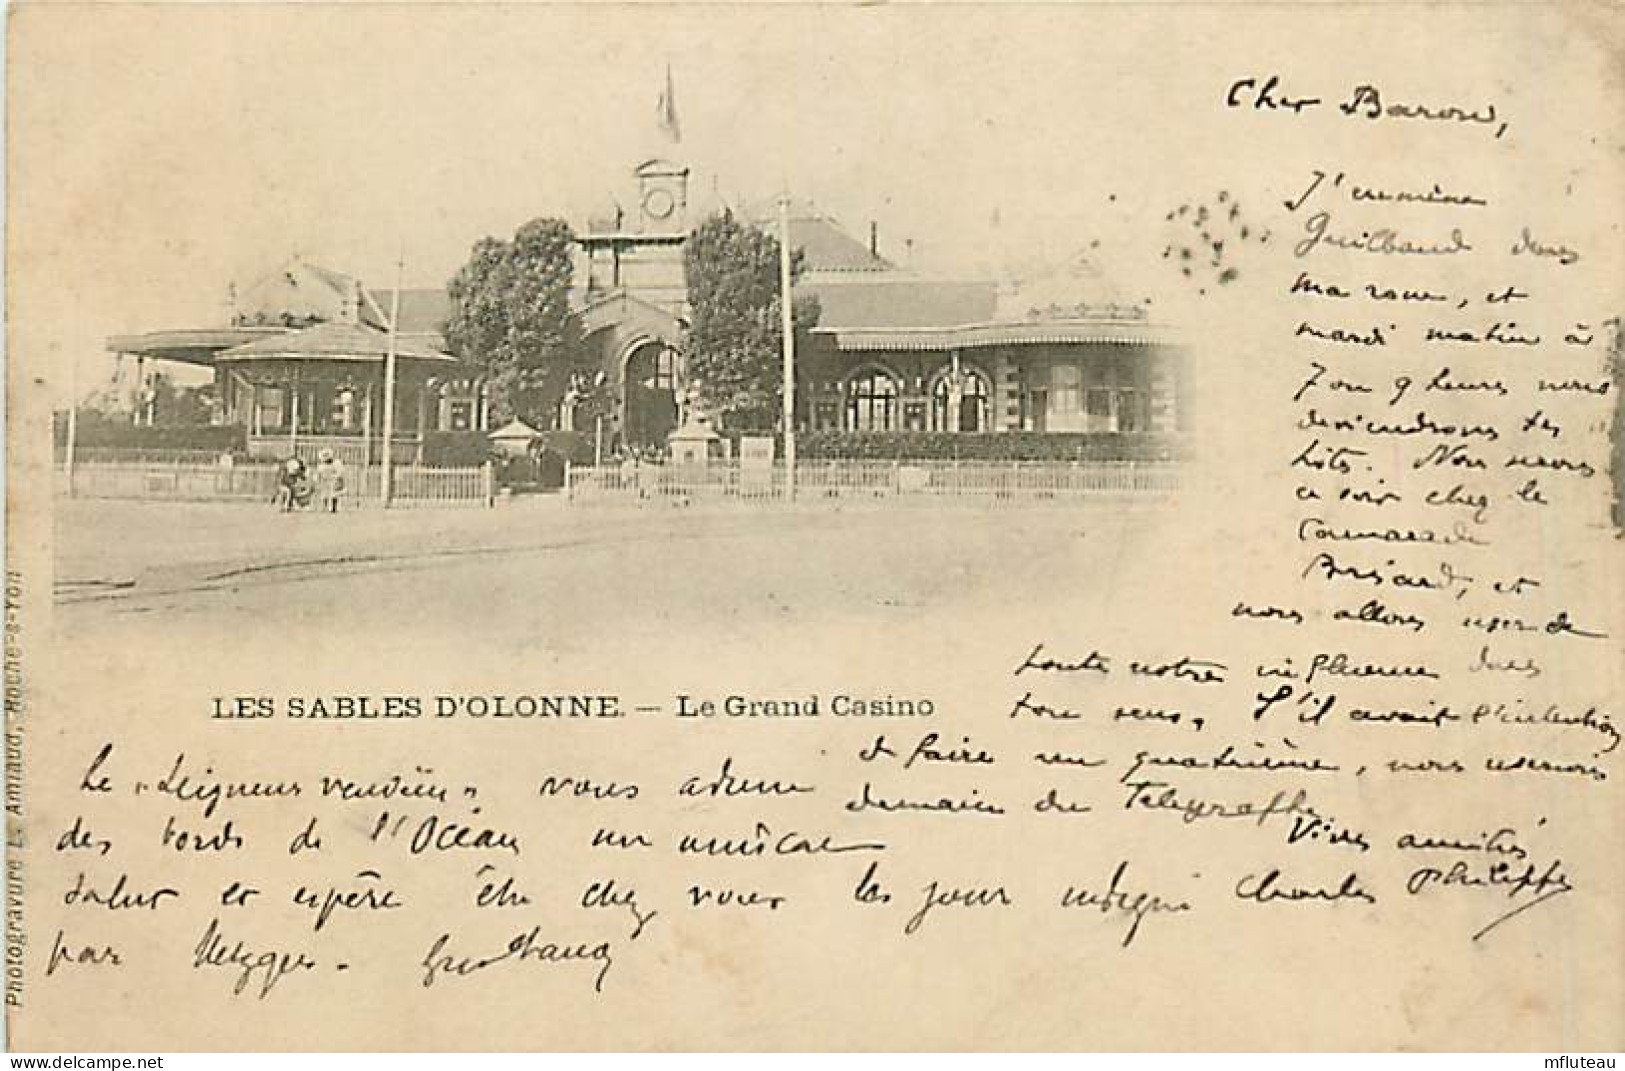 Cher Baron,
J'emmène
Guilbaud dans
ma roue, et
mardi matin à
7 ou 9 heures nous
deviendrons tes
hôtes. Nous serons
ce soir chez le
Camarade
et
nous allons user de
toute notre influence dans
ton sens. S'il avait l'intention
de faire un quatrième, nous userions
demain du Télégraphe
Vives amitiés
Charles Philippe
LES SABLES D'OLONNE. — Le Grand Casino
Le "Seigneur vendéen" vous adresse
des bords de l'Océan un amical
salut et espère être chez vous les jour indiqué
par
Photogravure L. Amiaud, Roche-s-Yon
mfluteau
www.delcampe.net